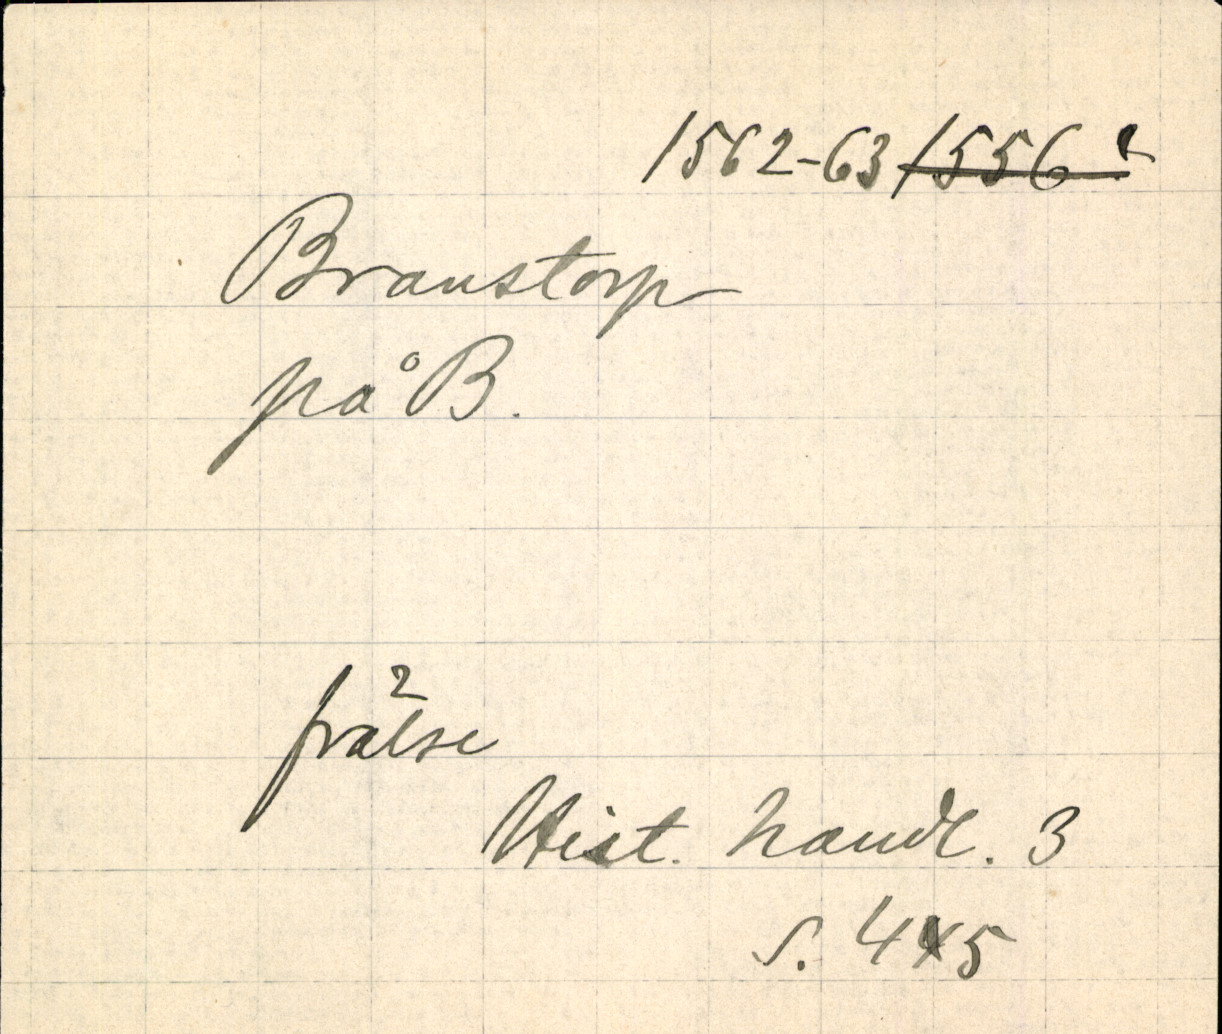 1562-63 1556?
Branstorp
på B.
frälse
Hist. handl. 3
s. 445